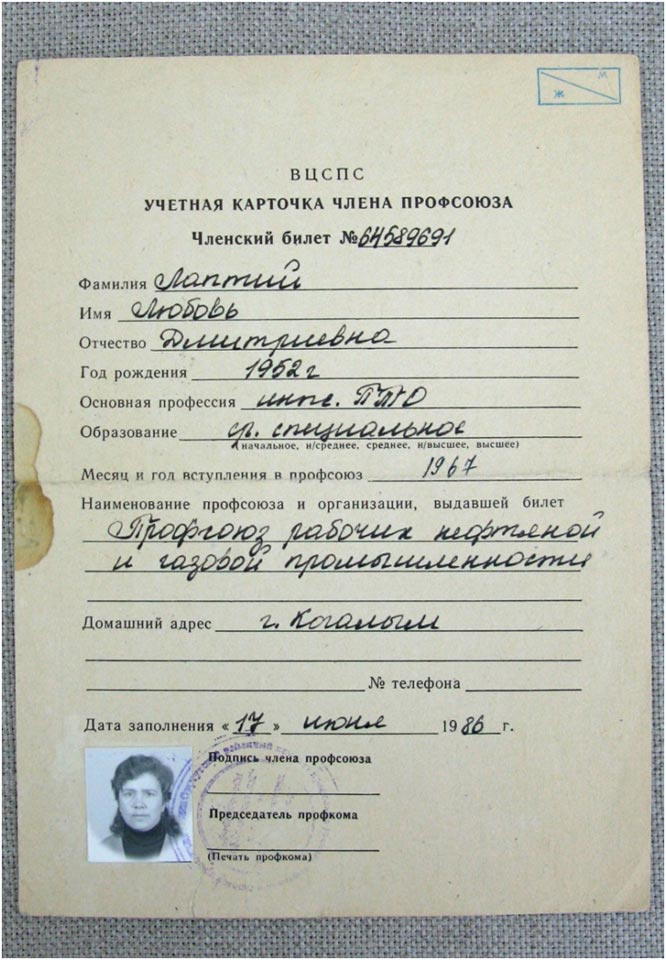 М
Ж
ВЦСПС
УЧЕТНАЯ КАРТОЧКА ЧЛЕНА ПРОФСОЮЗА
Членский билет № 64589691
Фамилия Лаптий
Имя Любовь
Отчество Дмитриевна
Год рождения 1952 г
Основная профессия инпс. ПТО
Образование ср. специальное
(начальное, н/среднее, среднее, н/высшее, высшее)
Месяц и год вступления в профсоюз 1967
Наименование профсоюза и организации, выдавшей билет
Профсоюз рабочих нефтяной
и газовой промышленности
Домашний адрес г. Когалым
№ телефона
Дата заполнения « 17 » июня 1986 г.
Подпись члена профсоюза
Председатель профкома
(Печать профкома)